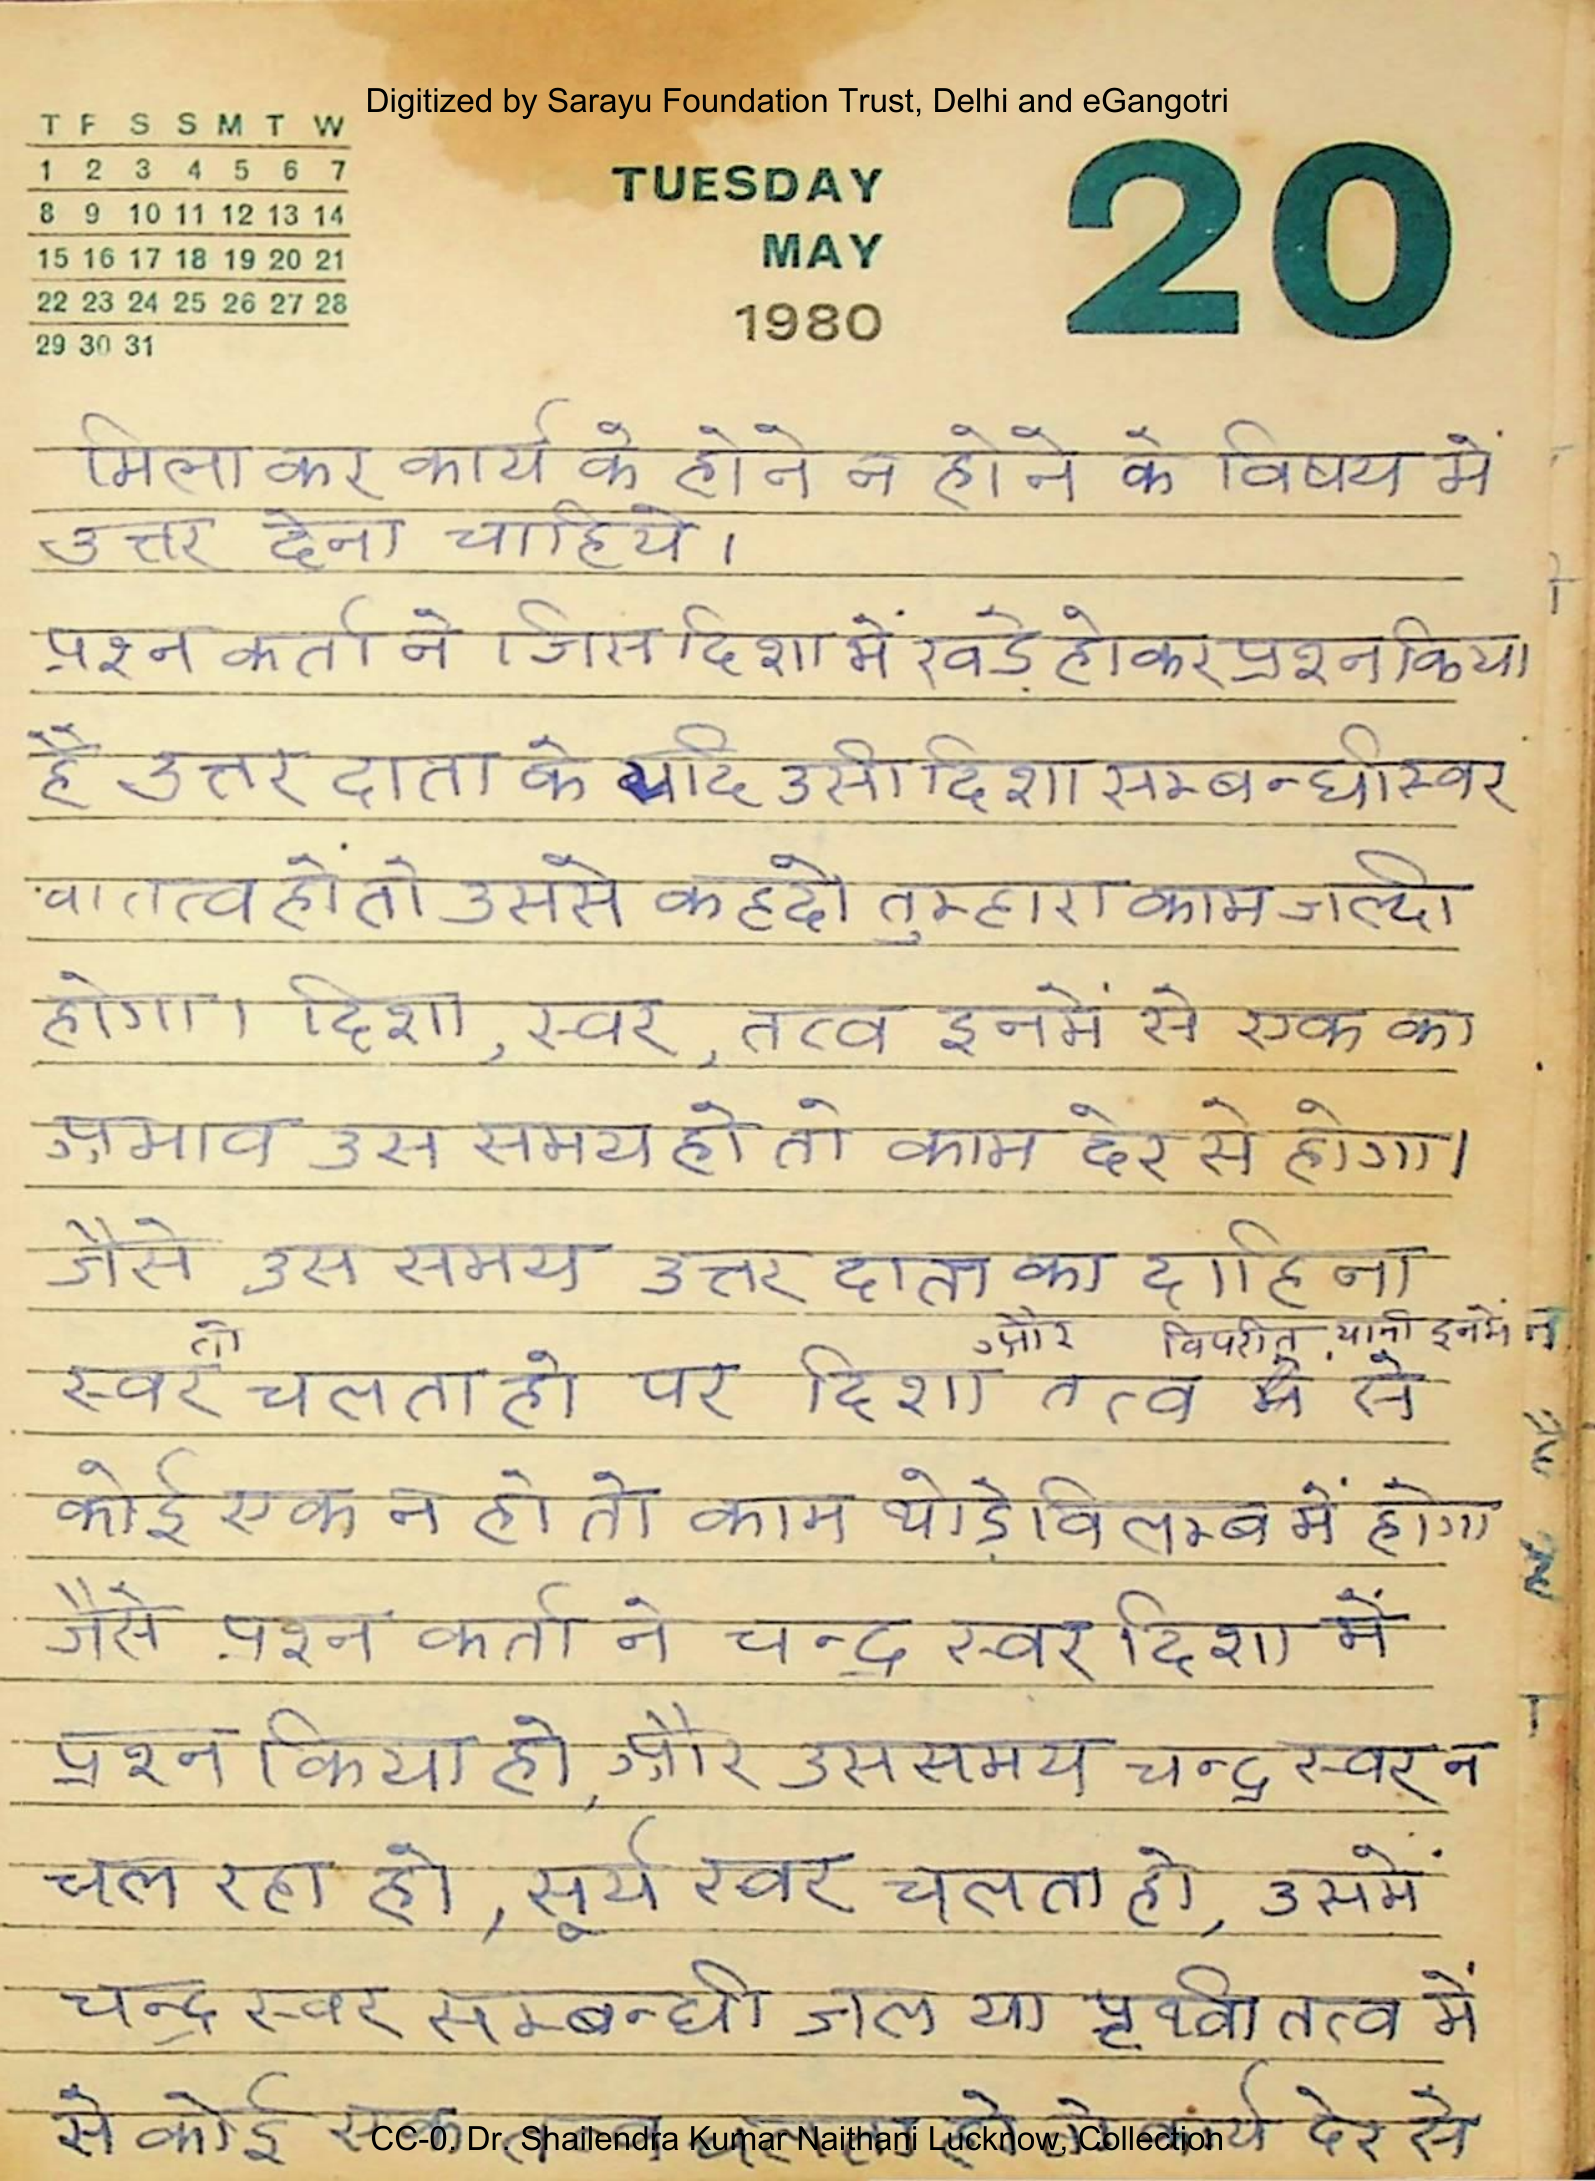 Digitized by Sarayu Foundation Trust, Delhi and eGangotri
T F S S M T W
1 2 3 4 5 6 7
8 9 10 11 12 13 14
15 16 17 18 19 20 21
22 23 24 25 26 27 28
29 30 31
TUESDAY
MAY
1980
20
मिला कर कार्य के होने न होने के विषय में
उत्तर देना चाहिये।
प्रश्न कर्ता ने जिस दिशा में खड़े होकर प्रश्न किया
है उत्तर दाता के यदि उसी दिशा सम्बन्धी स्वर
वा तत्व हों तो उससे कहदो तुम्हारा काम जल्दी
होगा। दिशा, स्वर, तत्व इनमें से एक का
प्रभाव उस समय हो तो काम देर से होगा।
जैसे उस समय उत्तर दाता का दाहिना
तो और विपरीत यानी इनमें
स्वर चलता हो पर दिशा तत्व में से
कोई एक न हो तो काम थोड़े विलम्ब में होगा
जैसे प्रश्न कर्ता ने चन्द्र स्वर दिशा में
प्रश्न किया हो, और उस समय चन्द्र स्वर न
चल रहा हो, सूर्य स्वर चलता हो, उसमें
चन्द्र स्वर सम्बन्धी जल या पृथ्वी तत्व में
से कोई एक कार्य देर से
CC-0. Dr. Shailendra Kumar Naithani Lucknow, Collection